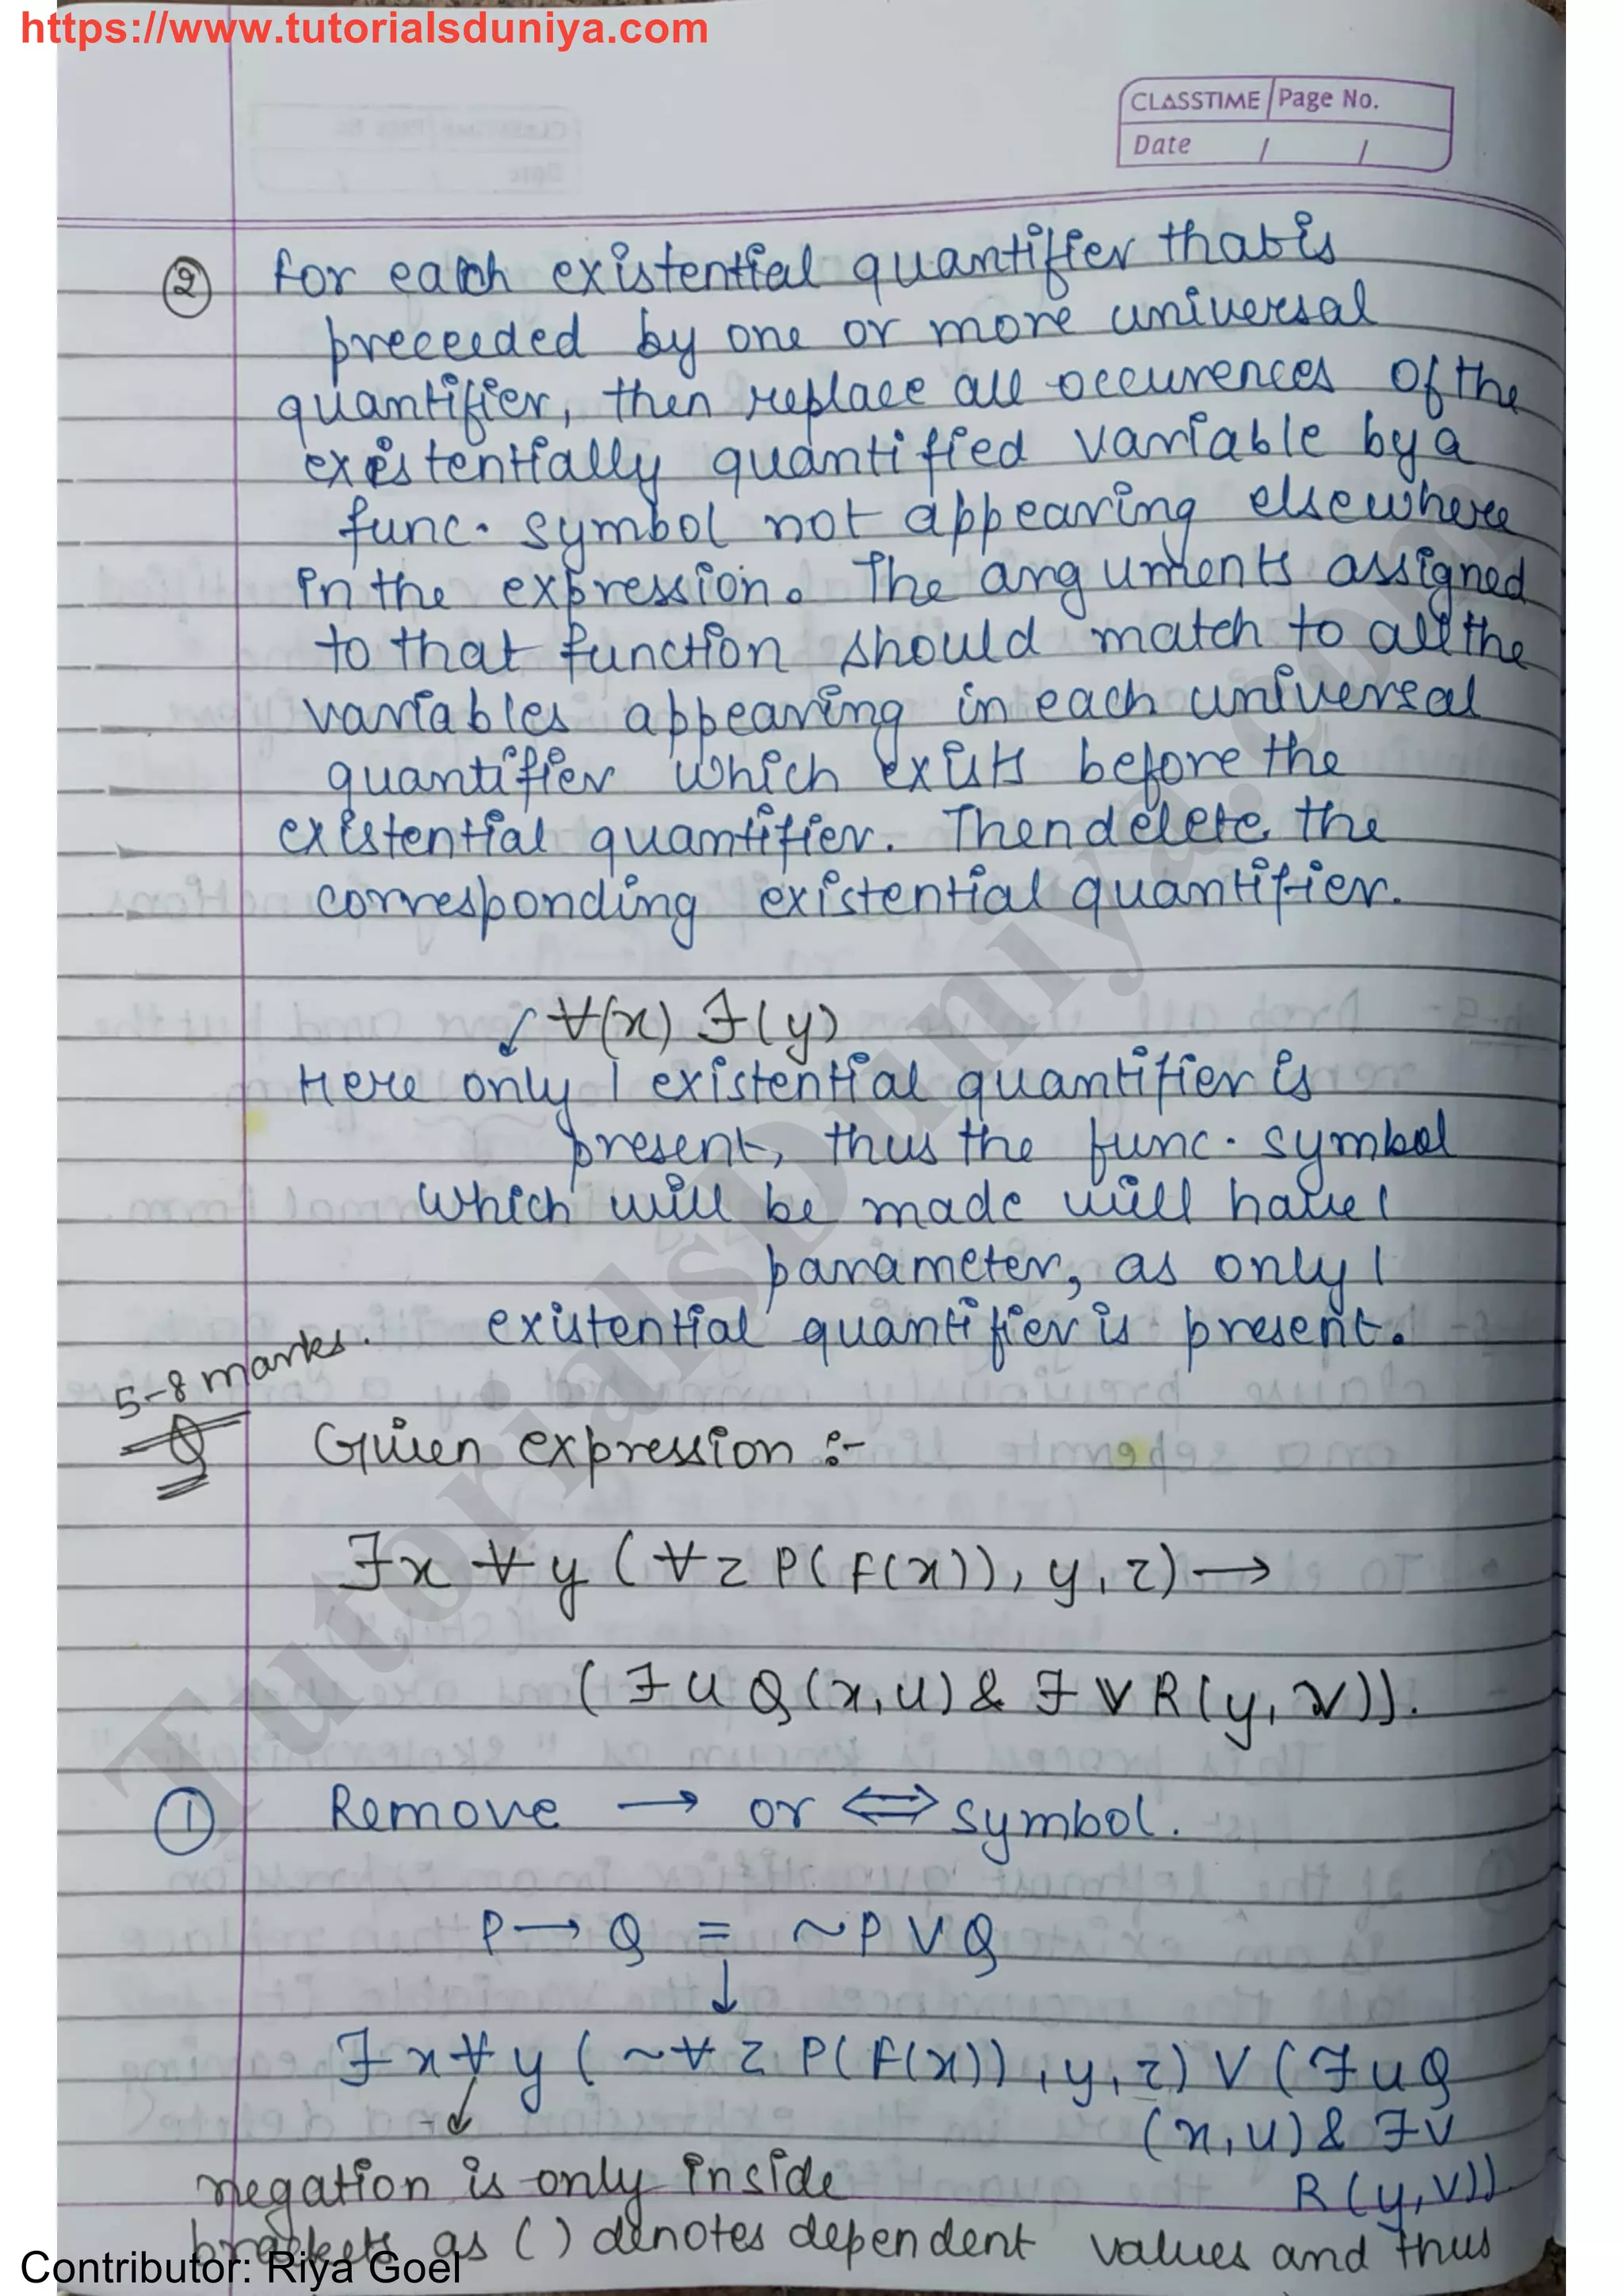 https://www.tutorialsduniya.com
CLASSTIME Page No.
Date / /
② for each existential quantifier that is
preceeded by one or more universal
quantifier, then replace all occurences of the
existentially quantified variable by a
func. symbol not appearing elsewhere
in the expression. The arguments assigned
to that function should match to all the
variables appearing in each universal
quantifier which exists before the
existential quantifier. Then delete the
corresponding existential quantifier.
↙ ∀(x) ∃(y)
Here only 1 existential quantifier is
present, thus the func. symbol
which will be made will have 1
parameter, as only 1
existential quantifier is present.
5-8 marks.
Q Given expression :-
∃x ∀y (∀z P(F(x)), y, z) →
(∃u Q(x,u) & ∃v R(y, v)).
① Remove → or ⇔ symbol.
P → Q = ~P V Q
↓
∃x ∀y (~∀z P(F(x)), y, z) V (∃u Q
(x,u) & ∃v
R(y,v))
negation is only inside
brackets as ( ) denotes dependent values and thus
Contributor: Riya Goel
TutorialsDuniya.com